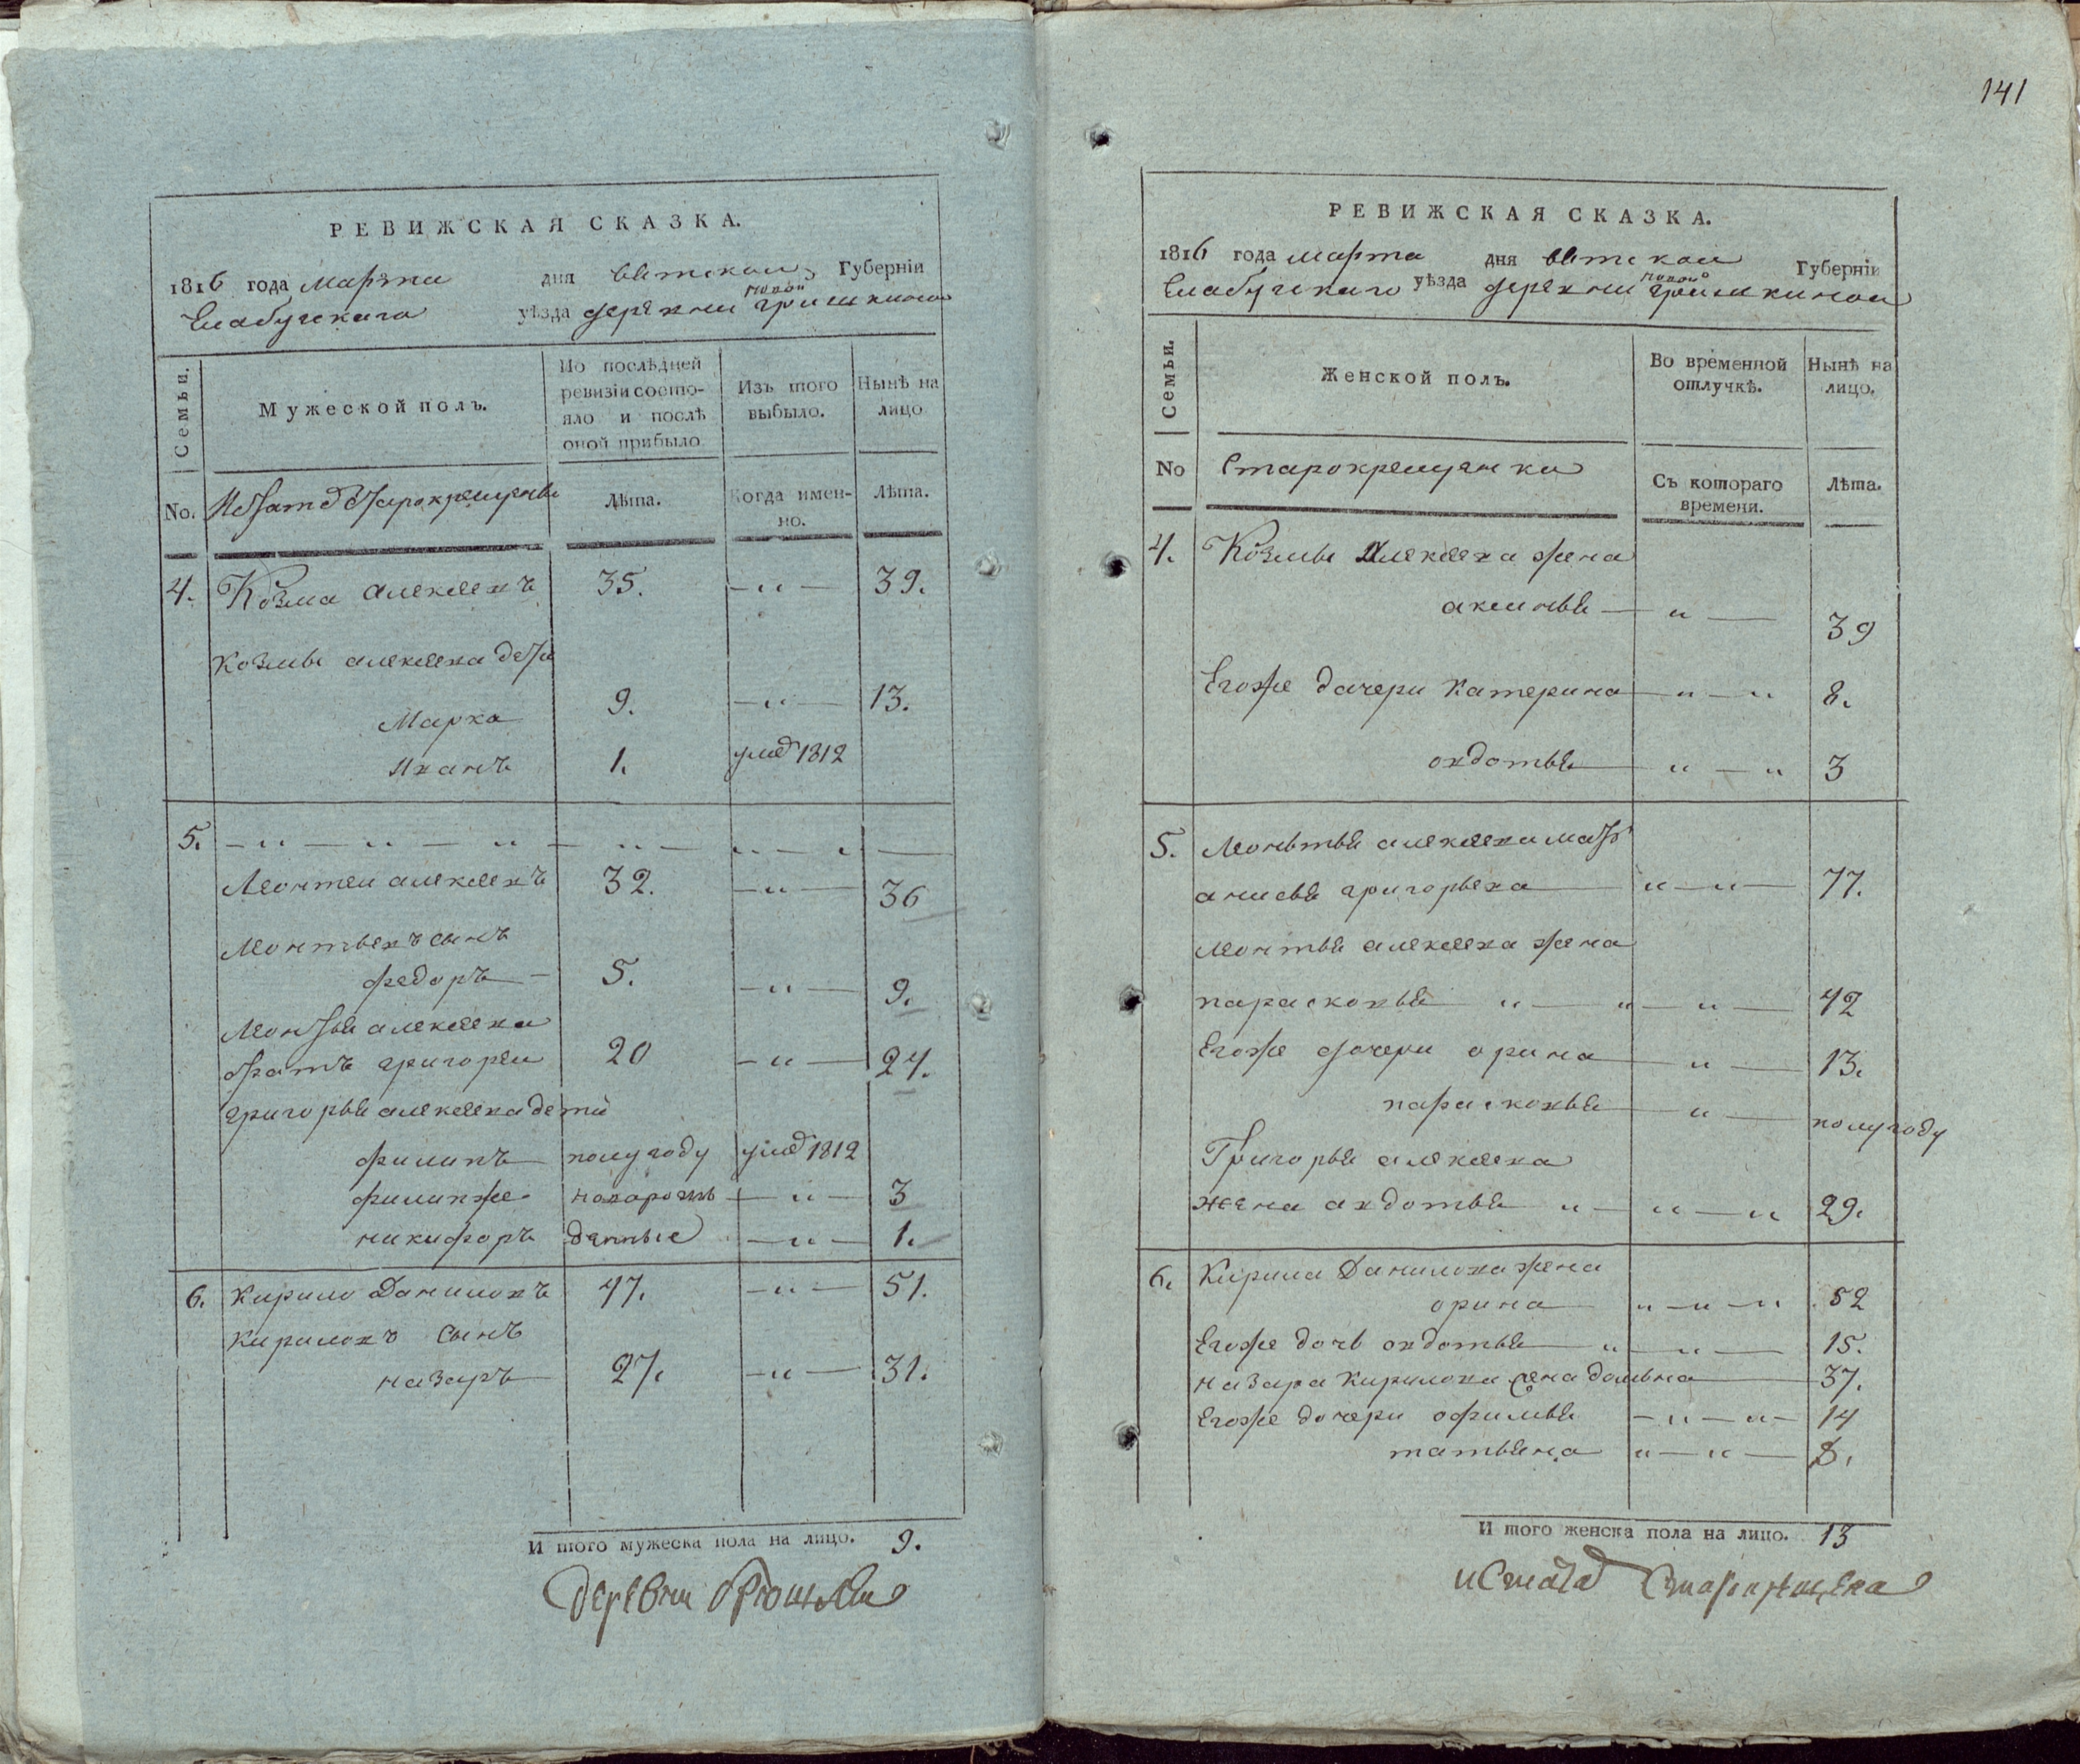 РЕВИЖСКАЯ СКАЗКА.
1816 года марта дня вятскои Губерніи
Елабугскаго уѣзда деревни новои гришкинои
Семьи.
Мужеской полъ.
По послѣдней ревизіи состо-
яло и послѣ
оной прибыло
Изъ того
выбыло.
Нынѣ на
лицо
No. старокрещены
Лѣта.
Когда имен-
но.
Лѣта.
4. Козма алексеевъ 35. — „ — 39.
Козмы алексеева дети
Марка 9. — „ — 13.
Иванъ 1. умѣ 1812
5. — „ — „ — „ — „ — „ —
Леонтеи алексеевъ 32. — „ — 36
Леонтьевъ сынъ
федоръ — 5. — „ — 9.
Леонтья алексеева
братъ григореи 20 — „ — 24.
григорья алексеева дети
филипъ полугоду умѣ 1812
филипже новорож — „ — 3
никифоръ денные — „ — 1.
6. Кирило Даниловъ 47. — „ — 51.
Кириловъ сынъ
назаръ 27. — „ — 31.
И того мужеска пола на лицо. 9.
деревни
141
РЕВИЖСКАЯ СКАЗКА.
1816 года марта дня вятскои Губерніи
Елабугскаго уѣзда деревни новои гришкинои
Семьи.
Женской полъ.
Во временной
отлучкѣ.
Нынѣ на
лицо.
No Старокрещенки
Съ котораго
времени.
Лѣта.
4. Козмы Алексеева жена
аксинья — „ — 39
Егоже дачери Катерина — „ — „ 8.
овдотья — „ — „ 3
5. Леоньтья алексеева мать
анисья григорьева — „ — „ — 77.
Леонтья алексеева жена
парасковья „ — „ — „ — 42
Егоже дочери орина — „ — 13.
парасковья — „ — полугоду
Григорья алексеева
жена авдотья „ — „ — „ 29.
6. Кирила Данилова жена
орина „ — „ — „ 52
Егоже дочь овдотья „ — „ — 15.
назара Кирилова жена домьна — 37.
Егоже дочери офимья — „ — „ — 14
татьяна „ — „ — 8.
И того женска пола на лицо. 13